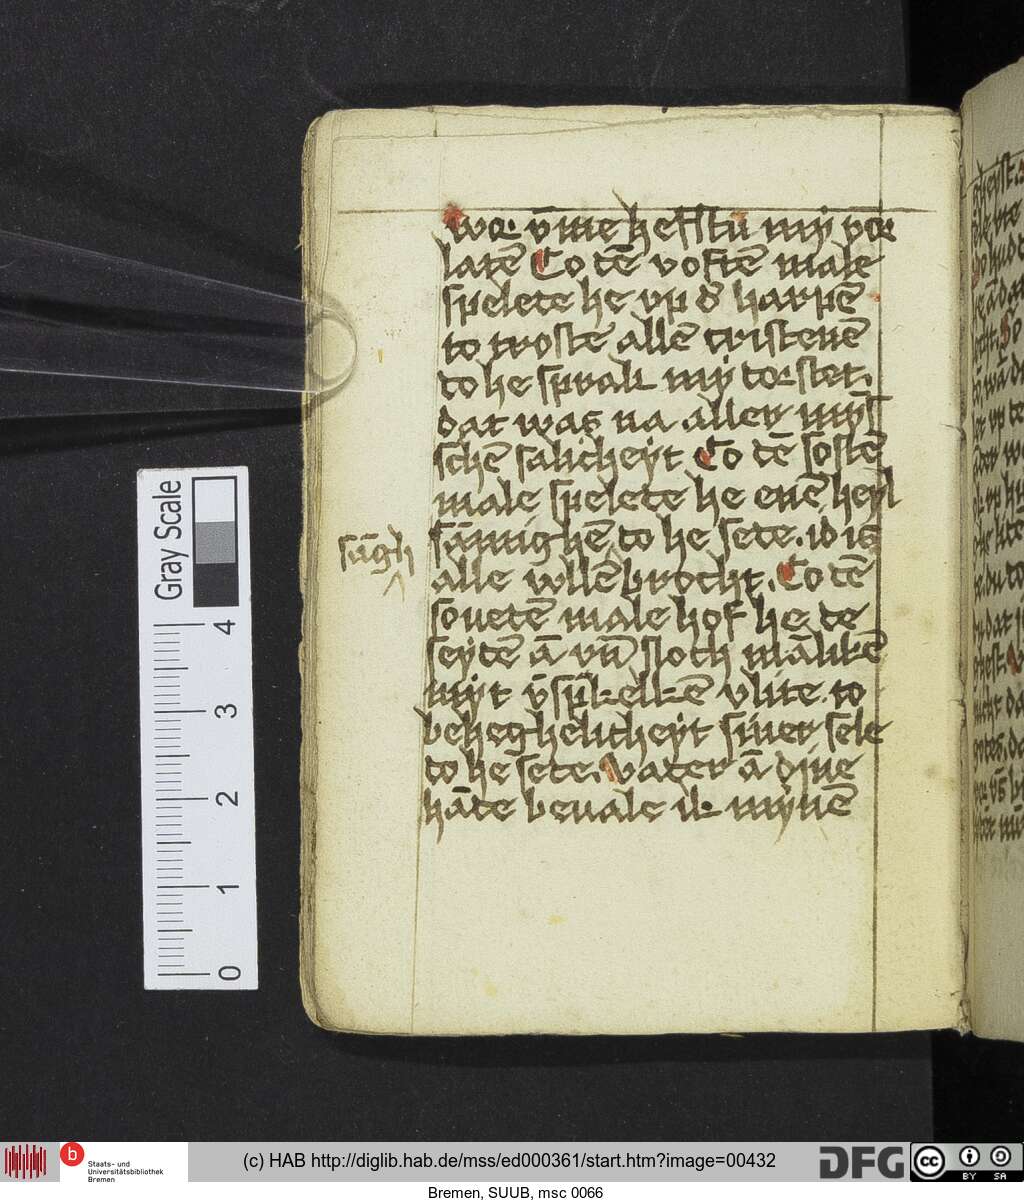 wor v̄me hefstu my vor
latē To dē voftē male
spelete he vp d' harpē
to trostē allē cristenē
do he sprak my dorstet.
dat was na aller mȳs
schē salicheyt To dē sostē
male spelete he enē heyl
sāmighē do he sede. id is
sāgh
alle wllēbrocht. To dē
souedē male hof he de
seydē ā vn̄ sloch mālikē
myt v̄sp̄kelkē vlite. to
behegheliicheyt siner sele
do he sede. vader ā dyne
hāde beuale ik mynē
Gray Scale
0 1 2 3 4
b
Staats- und
Universitätsbibliothek
Bremen
(c) HAB http://diglib.hab.de/mss/ed000361/start.htm?image=00432
DFG
cc BY SA
Bremen, SUUB, msc 0066